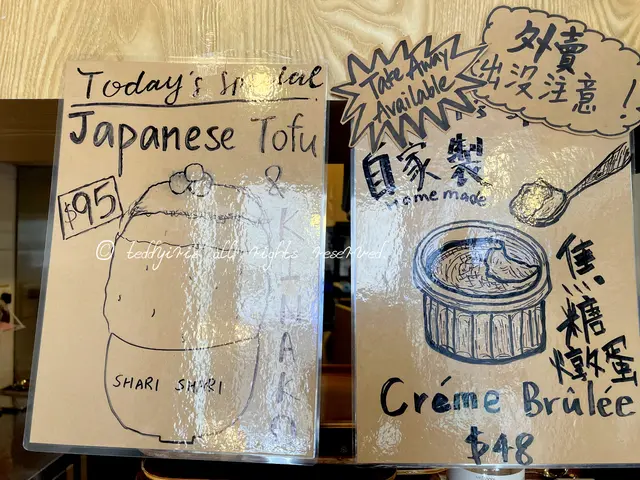 Today's Special
Japanese Tofu
& KINAKO
$95
SHARI SHARI
© teddyirix all rights reserved
Take Away
Available
外賣
出沒注意！
自家製
Homemade
焦糖燉蛋
Créme Brûlée
$48